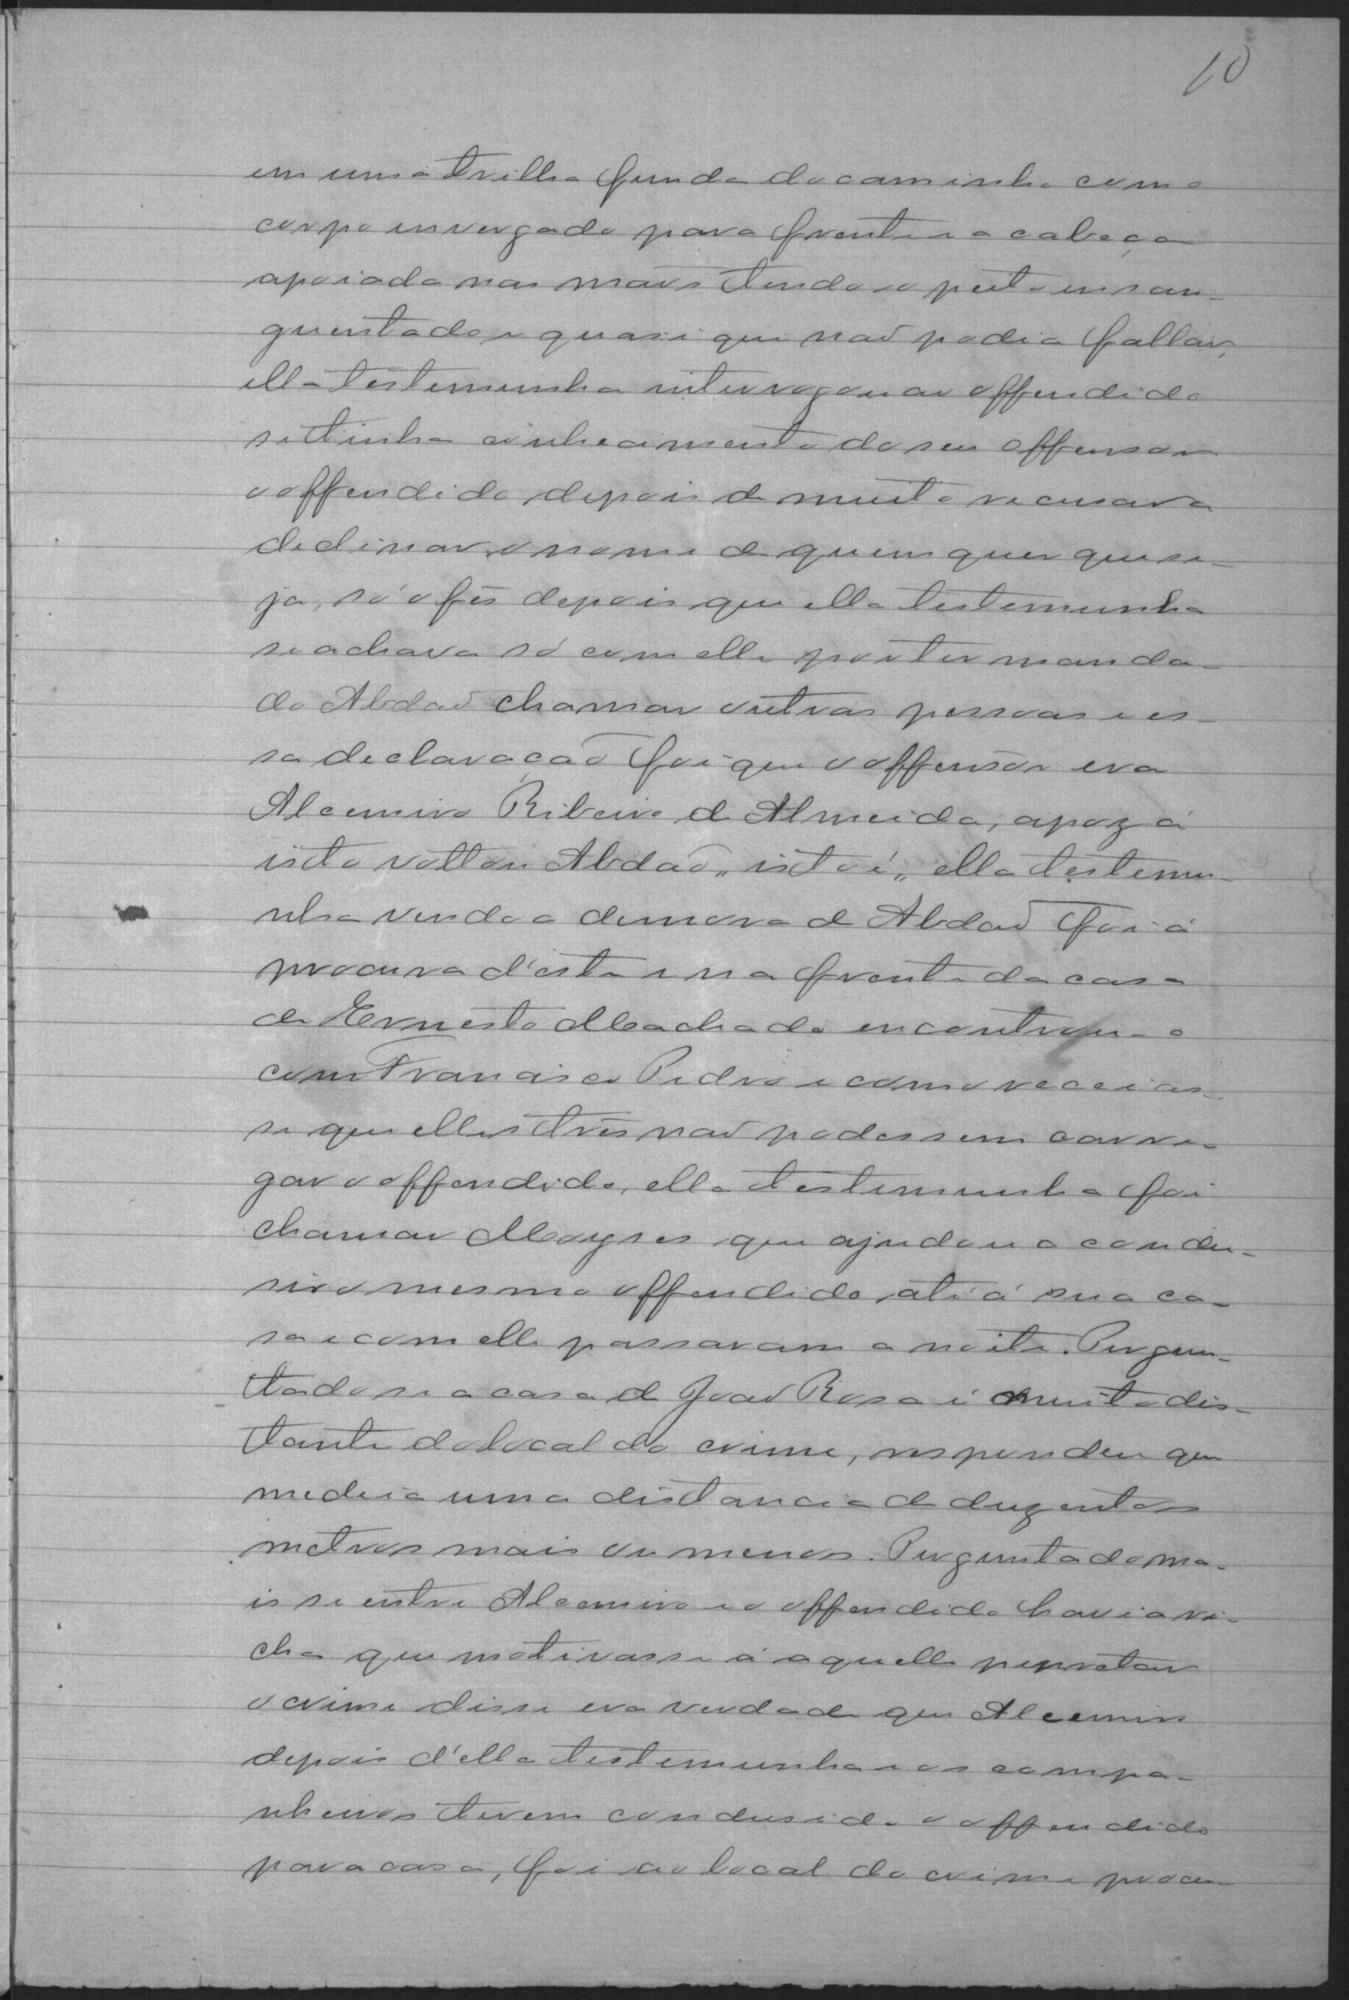 10
em uma trilha funda do caminho com o
corpo envergado para frente e a cabeça
apoiada nas mãos tendo o peito ensan-
guentado e quasi que não podia fallar,
ella testemunha interrogou ao offendido
se tinha conhecimento do seu offensor
o offendido depois de muito recusar a
declinar o nome de quem quer que se-
ja, só o fês depois que ella testemunha
se achava só com elle por ter manda-
do Abdão chamar outras pessoas e es-
sa declaração foi que o offensor era
Alcemiro Ribeiro de Almeida, apoz á
isto voltou Abdão „ isto é „ ella testemu-
nha vendo a demora de Abdão foi á
procura d'este e na frente da casa
de Ernesto Machado encontrou-o
com Francisco Pedro e como receias-
se que elles três não podessem carre-
gar o offendido, ella testemunha foi
chamar Moyses que ajudou a condu-
sir o mesmo offendido até á sua ca-
sa e com elle passaram a noite. Pergun-
tado se a casa de João Rosa é muito dis-
tante do local do crime, respondeu que
mediria uma distancia de duzentos
metros mais ou menos. Perguntado ma-
is se entre Alcemiro e o offendido havia ri-
cha que motivasse á aquelle perpretar
o crime disse era verdade que Alcemiro
depois d'ella testemunha e os compa-
nheiros terem condusido o offendido
para casa, foi ao local do crime procu-